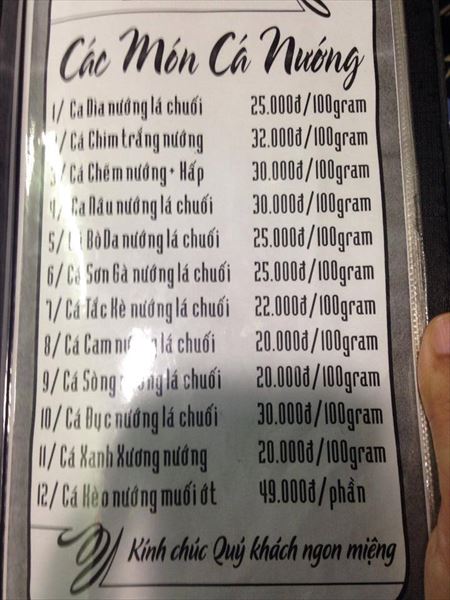 Các Món Cá Nướng
1/ Ca Dìa nướng lá chuối 25.000đ/100gram
2/ Cá Chim trắng nướng 32.000đ/100gram
3/ Cá Chẽm nướng + Hấp 30.000đ/100gram
4/ Ca Nâu nướng lá chuối 30.000đ/100gram
5/ Bò Da nướng lá chuối 25.000đ/100gram
6/ Cá Sơn Gà nướng lá chuối 25.000đ/100gram
7/ Cá Tắc Kè nướng lá chuối 22.000đ/100gram
8/ Cá Cam nướng lá chuối 20.000đ/100gram
9/ Cá Sòng nướng lá chuối 20.000đ/100gram
10/ Cá Đục nướng lá chuối 30.000đ/100gram
11/ Cá Xanh Xương nướng 20.000đ/100gram
12/ Cá Kèo nướng muối ớt 49.000đ/phần
Kính chúc Quý khách ngon miệng